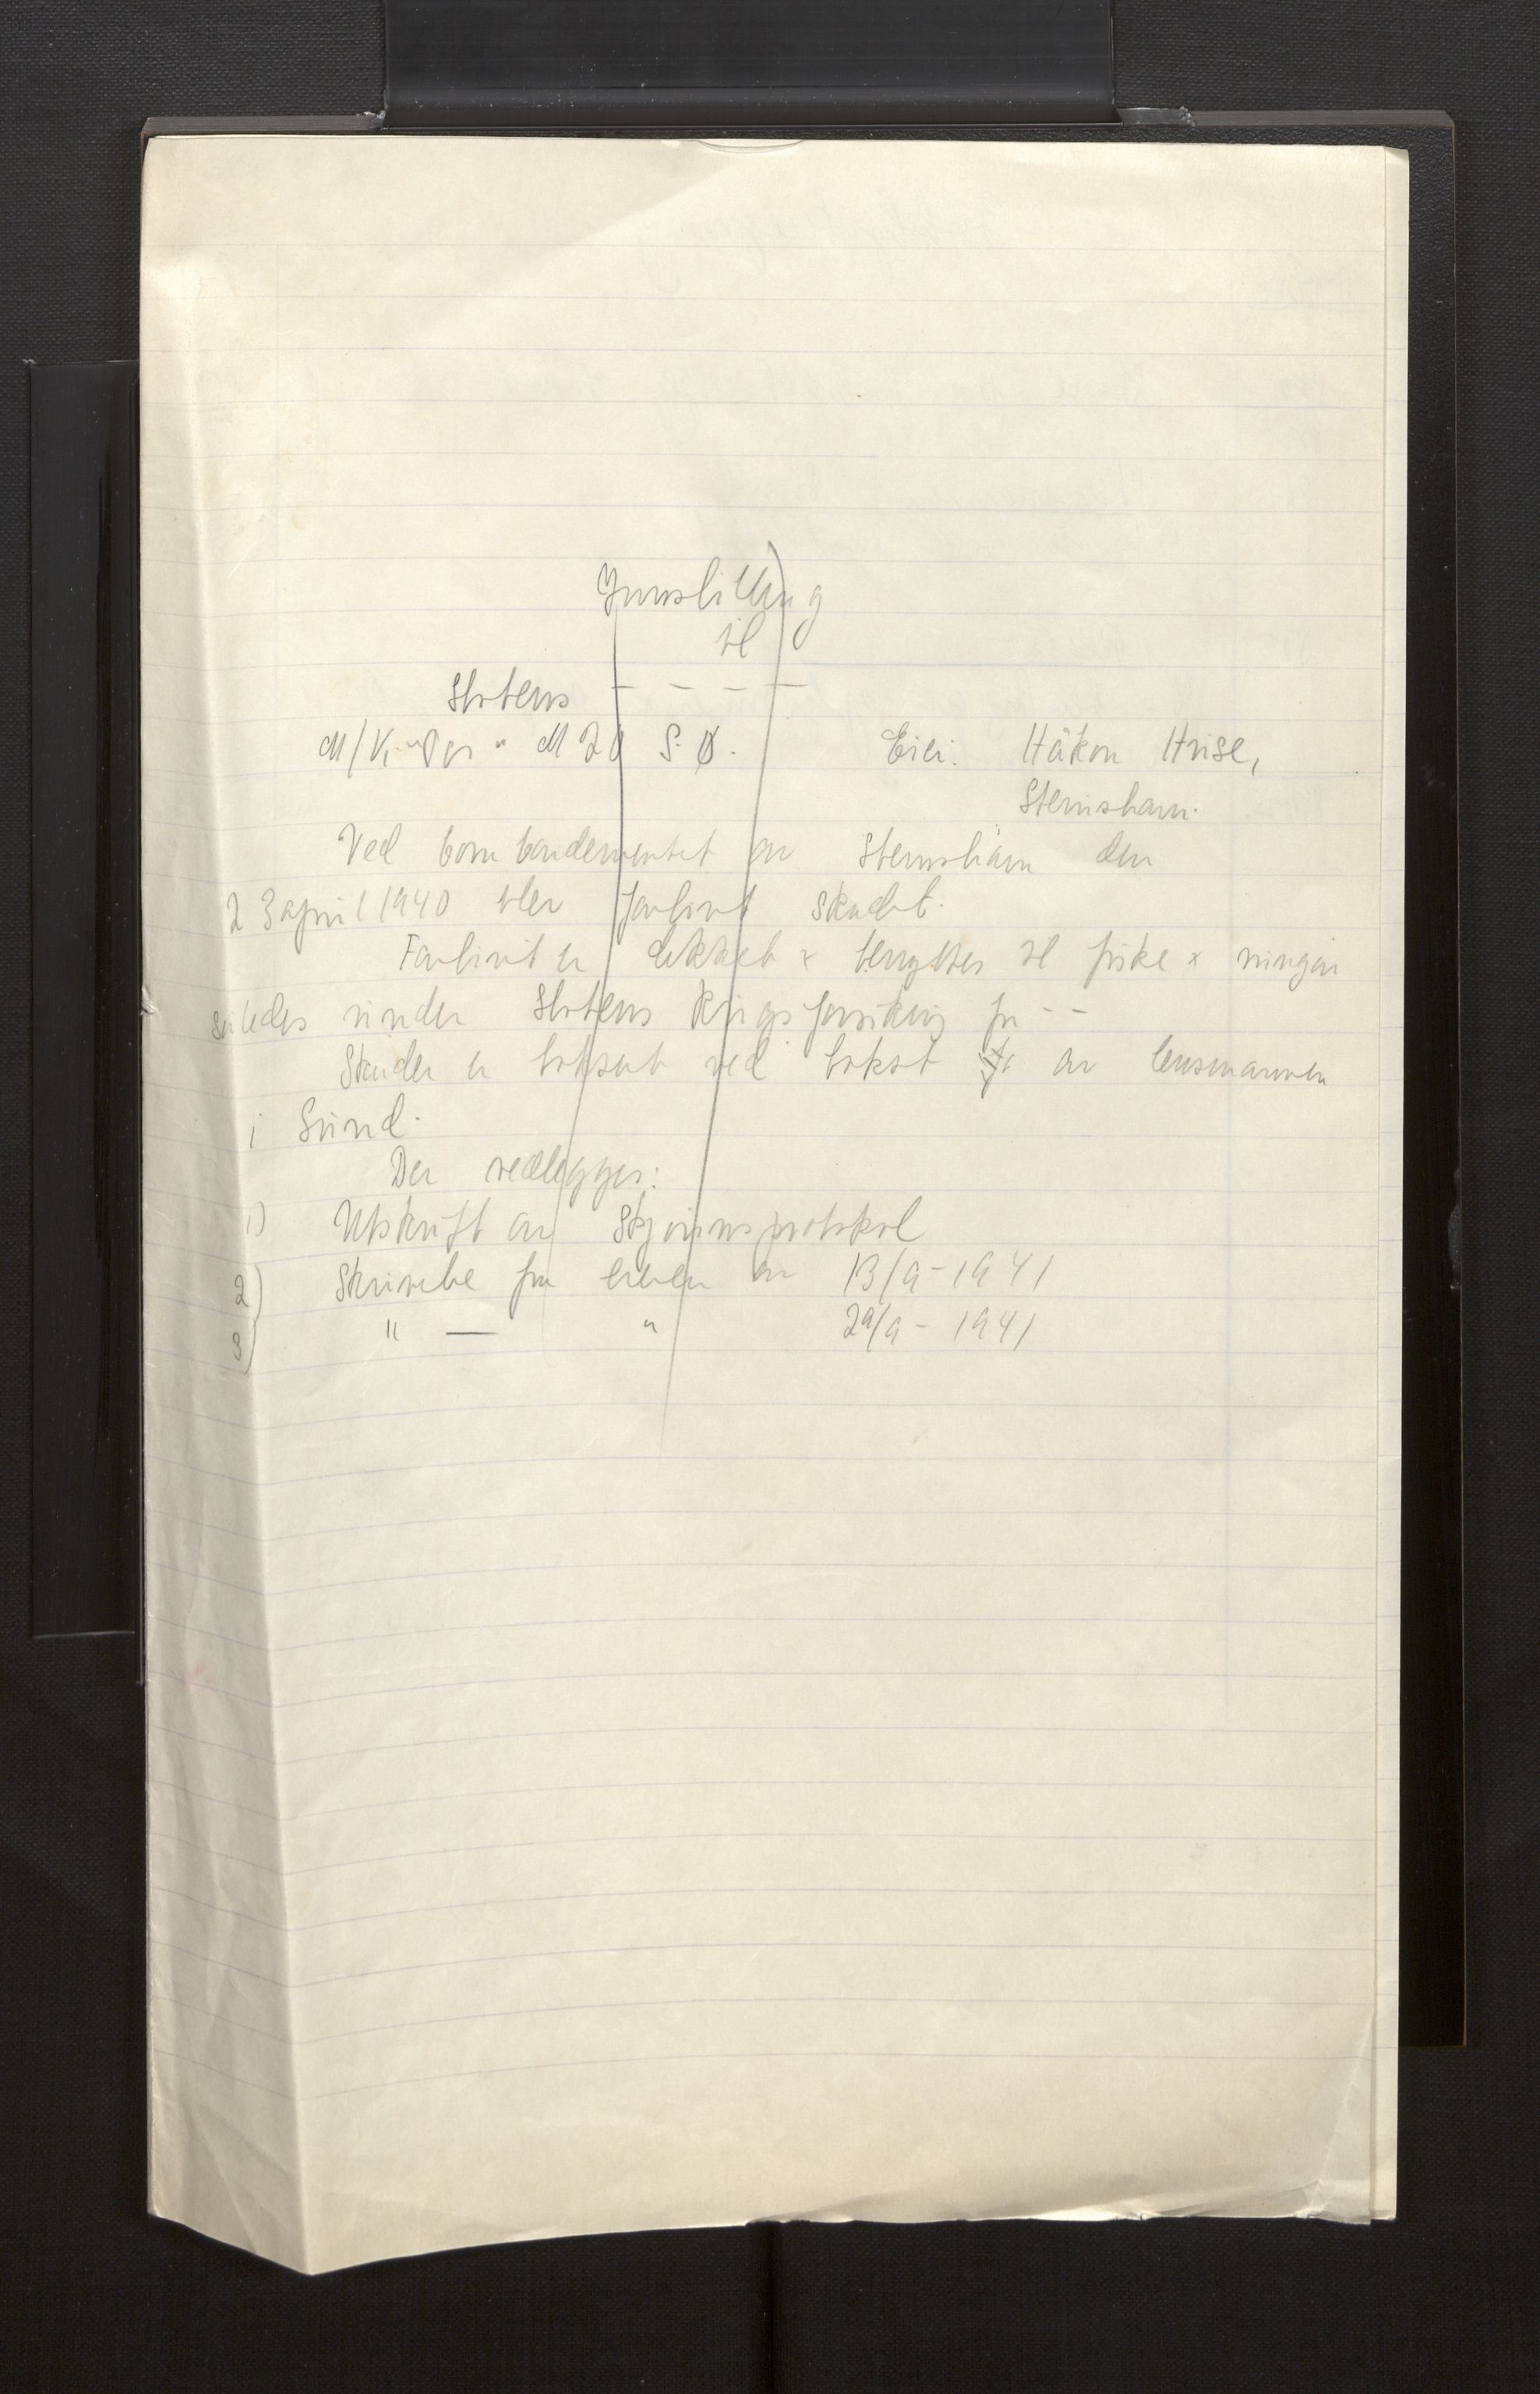 Innstilling
til
Statens — — — —
M/K "Par" M 20 S.Ø. Eier: Håkon Huse,
Steinshamn.
Ved bombardementet av Steinshamn den
23 april 1940 blev farkost skadet.
Farkost er dekket x benyttes til fiske x inngår
således under Statens krigsforsikring for - -
Skaden er taksert ved takst av lensmannen
i Sund.
Der vedlegges:
1) Utskrift av Skjønnsprotokol
2) Skrivelse fra eieren av 13/9-1941
3) " — " 29/9-1941